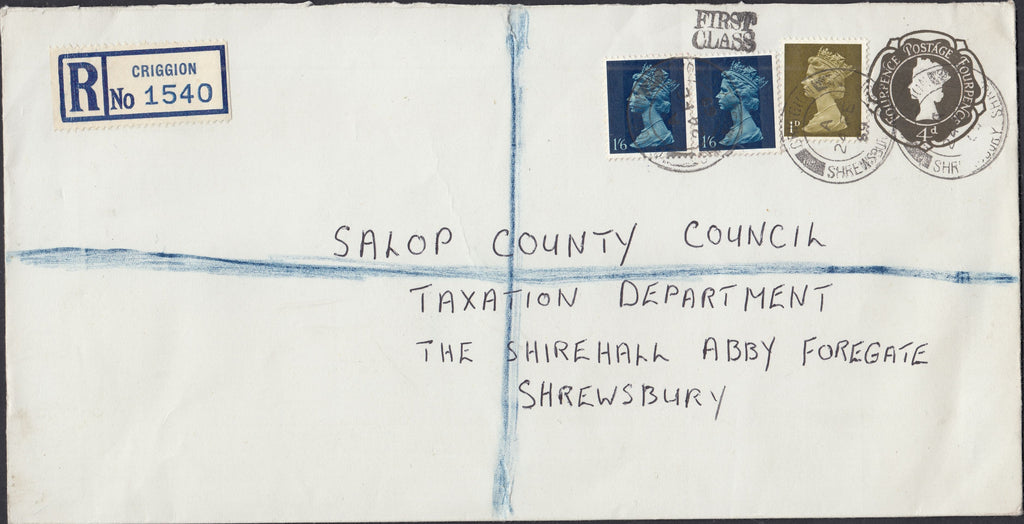 FIRST
CLASS
R
CRIGGION
No 1540
1/6
1/6
1D
FOURPENCE POSTAGE FOURPENCE
4d
SHREWSBU
SHR
SALOP COUNTY COUNCIL
TAXATION DEPARTMENT
THE SHIREHALL ABBY FOREGATE
SHREWSBURY